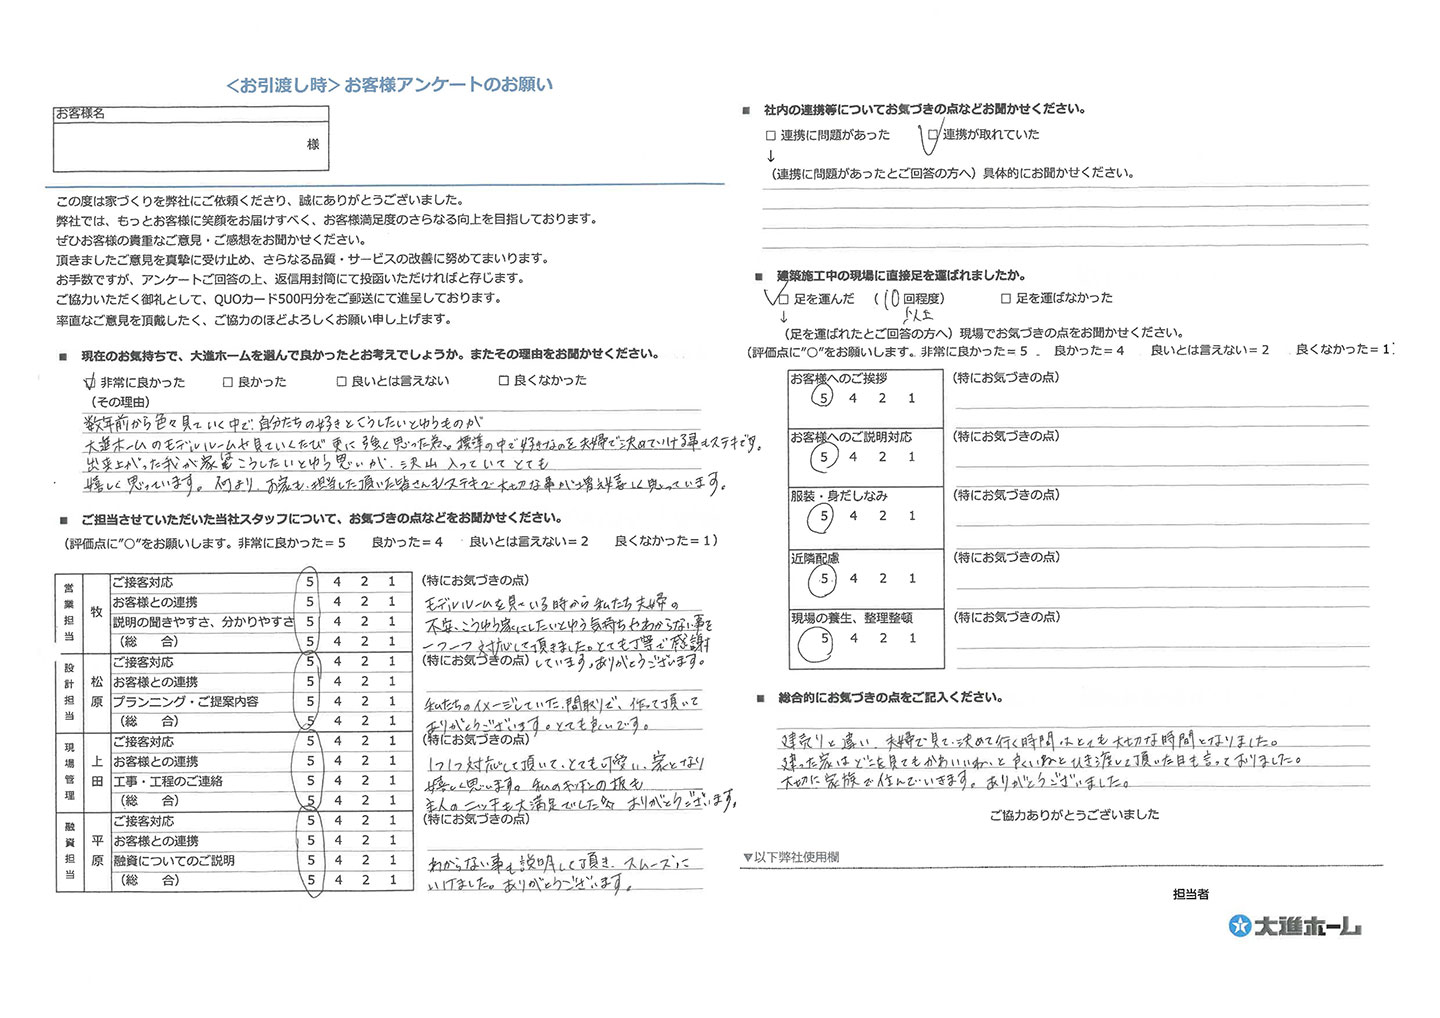 ＜お引渡し時＞お客様アンケートのお願い
お客様名
様
この度は家づくりを弊社にご依頼くださり、誠にありがとうございました。
弊社では、もっとお客様に笑顔をお届けすべく、お客様満足度のさらなる向上を目指しております。
ぜひお客様の貴重なご意見・ご感想をお聞かせください。
頂きましたご意見を真摯に受け止め、さらなる品質・サービスの改善に努めてまいります。
お手数ですが、アンケートご回答の上、返信用封筒にて投函いただければと存じます。
ご協力いただく御礼として、QUOカード500円分をご郵送にて進呈しております。
率直なご意見を頂戴したく、ご協力のほどよろしくお願い申し上げます。
■ 現在のお気持ちで、大進ホームを選んで良かったとお考えでしょうか。またその理由をお聞かせください。
☑ 非常に良かった □ 良かった □ 良いとは言えない □ 良くなかった
（その理由）
数年前から色々見ていく中で、自分たちの好きとこうしたいとゆうものが
大進ホームのモデルルームや見ていくたび更に強く思った為。標準の中で好きなのを夫婦で決めていける事もステキです。
出来上がった我が家はこうしたいとゆう思いが、沢山入っていてとても
嬉しく思っています。何より、お家も、担当した頂いた皆さんもステキで大切な事が増え嬉しく思っています。
■ ご担当させていただいた当社スタッフについて、お気づきの点などをお聞かせください。
（評価点に”〇”をお願いします。非常に良かった＝５ 良かった＝４ 良いとは言えない＝２ 良くなかった＝１）
営業担当 牧
ご接客対応 5 4 2 1
お客様との連携 5 4 2 1
説明の聞きやすさ、分かりやすさ 5 4 2 1
（総 合） 5 4 2 1
（特にお気づきの点）
モデルルームを見ている時から私たち夫婦の
不安、こうゆう家にしたいとゆう気持ちやわからない事を
一つ一つ対応して頂きました。とても丁寧で感謝
しています。ありがとうございます。
設計担当 松原
ご接客対応 5 4 2 1
お客様との連携 5 4 2 1
プランニング・ご提案内容 5 4 2 1
（総 合） 5 4 2 1
（特にお気づきの点）
私たちのイメージしていた、間取りで、作って頂いて
ありがとうございます。とても良いです。
現場管理 上田
ご接客対応 5 4 2 1
お客様との連携 5 4 2 1
工事・工程のご連絡 5 4 2 1
（総 合） 5 4 2 1
（特にお気づきの点）
1つ1つ対応して頂いて、とても可愛い、家となり
嬉しく思います。私のキッチンの板も
主人のニッチも大満足でした ありがとうございます。
融資担当 平原
ご接客対応 5 4 2 1
お客様との連携 5 4 2 1
融資についてのご説明 5 4 2 1
（総 合） 5 4 2 1
（特にお気づきの点）
わからない事も説明して頂き、スムーズに
いけました。ありがとうございます。
■ 社内の連携等についてお気づきの点などお聞かせください。
□ 連携に問題があった ☑ 連携が取れていた
↓
（連携に問題があったとご回答の方へ）具体的にお聞かせください。
■ 建築施工中の現場に直接足を運ばれましたか。
☑ 足を運んだ （10回程度） □ 足を運ばなかった
以上
↓
（足を運ばれたとご回答の方へ）現場でお気づきの点をお聞かせください。
（評価点に”〇”をお願いします。非常に良かった＝５ 良かった＝４ 良いとは言えない＝２ 良くなかった＝１）
お客様へのご挨拶 （特にお気づきの点）
5 4 2 1
お客様へのご説明対応 （特にお気づきの点）
5 4 2 1
服装・身だしなみ （特にお気づきの点）
5 4 2 1
近隣配慮 （特にお気づきの点）
5 4 2 1
現場の養生、整理整頓 （特にお気づきの点）
5 4 2 1
■ 総合的にお気づきの点をご記入ください。
建売りと違い、夫婦で見て、決めて行く時間はとても大切な時間となりました。
建った家はどこを見てもかわいいねっと良いねとひき渡して頂いた日も言っておりました。
大切に家族で住んでいきます。ありがとうございました。
ご協力ありがとうございました
▼以下弊社使用欄
担当者
大進ホーム